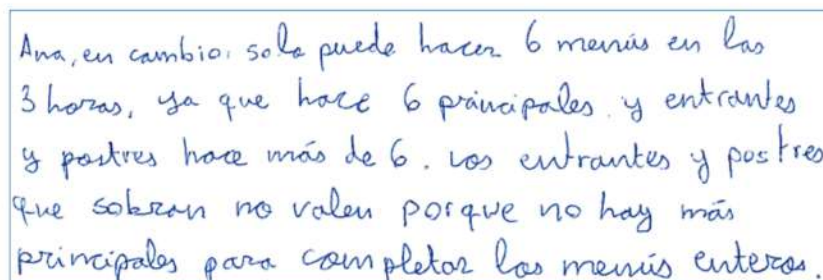 Ana, en cambio, solo puede hacer 6 menús en las
3 horas, ya que hace 6 principales y entrantes
y postres hace más de 6. Los entrantes y postres
que sobran no valen porque no hay más
principales para completar los menús enteros.